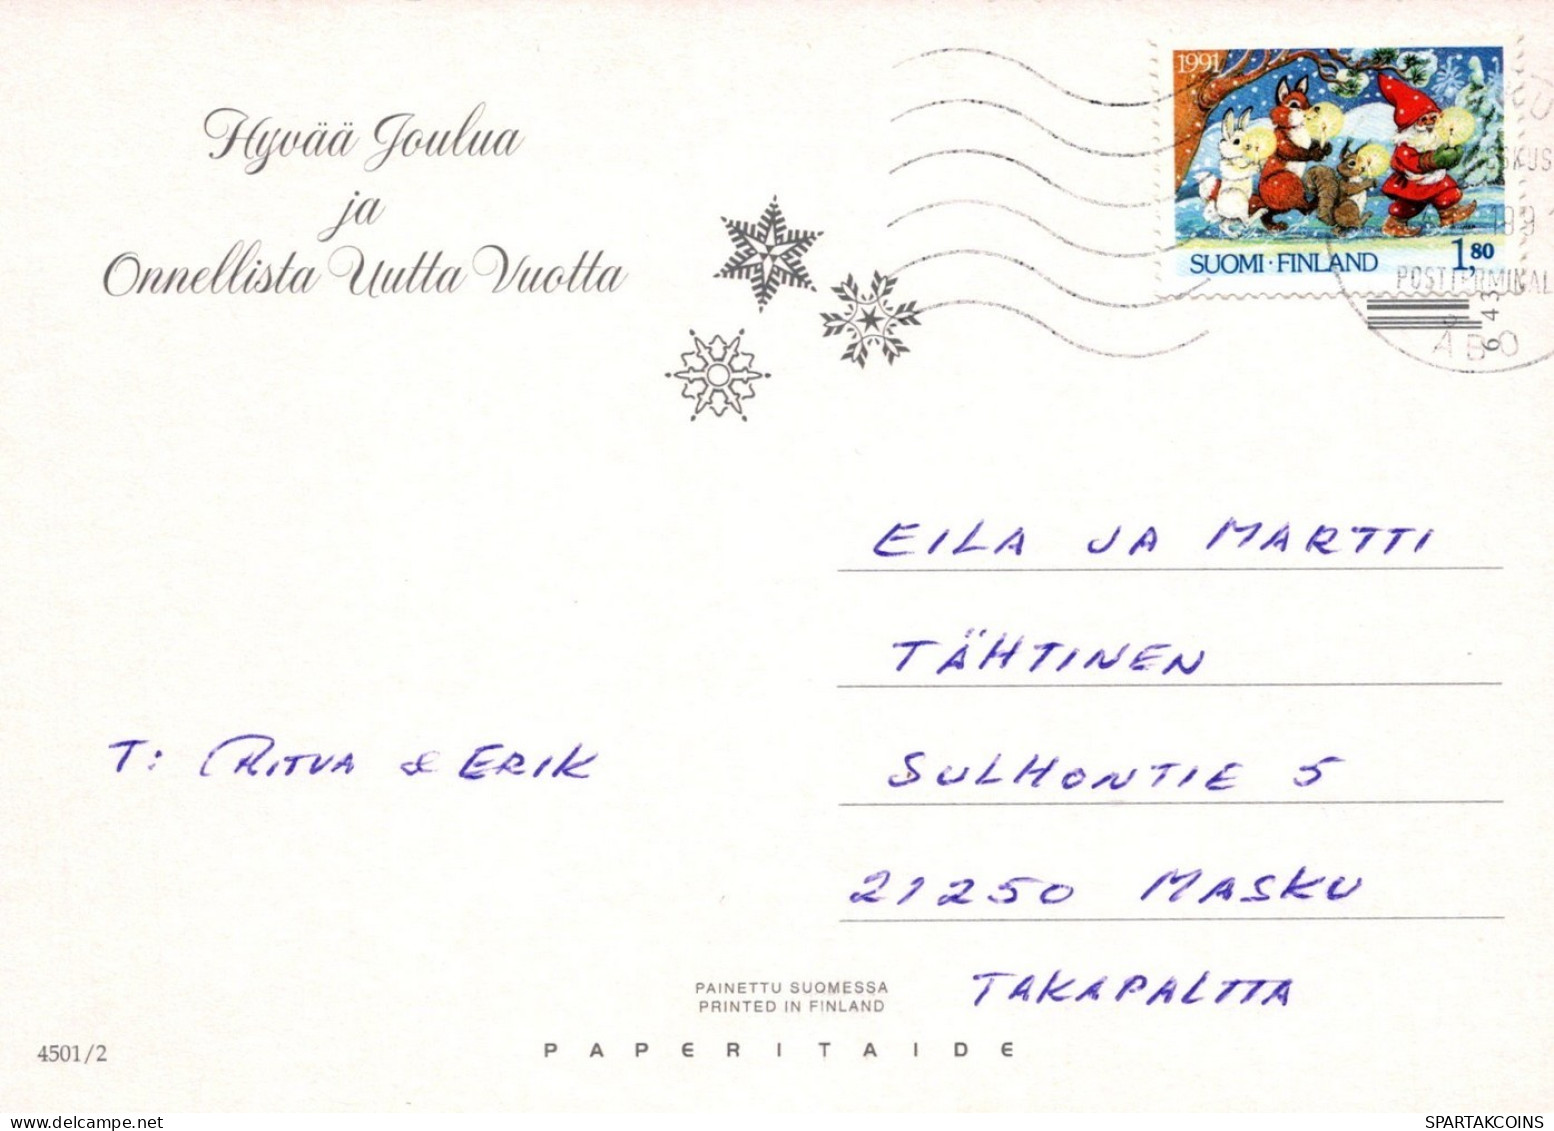 Hyvää Joulua
ja
Onnellista Uutta Vuotta
1991
SUOMI·FINLAND
1,80
POSTTERMINAL
ÅBO
EILA JA MARTTI
TÄHTINEN
SULHONTIE 5
21250 MASKU
TAKAPALTTA
T: RITVA & ERIK
PAINETTU SUOMESSA
PRINTED IN FINLAND
4501/2
PAPERITAIDE
SPARTAKCOINS